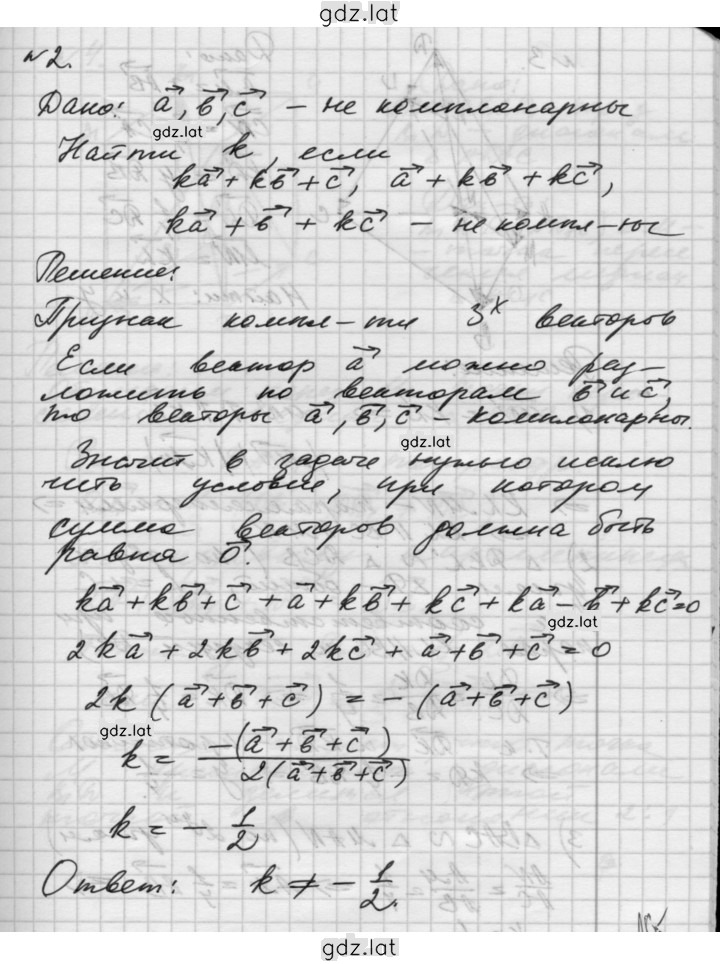 gdz.lat
№2.
Дано: a⃗, b⃗, c⃗ – не компланарны
gdz.lat
Найти k, если
ka⃗ + kb⃗ + c⃗, a⃗ + kb⃗ + kc⃗,
ka⃗ + b⃗ + kc⃗ – не компл-ны
Решение:
Признак компл-ти 3х векторов
Если вектор a⃗ можно раз-
ложить по векторам b⃗ и c⃗,
то векторы a⃗, b⃗, c⃗ – компланарны.
gdz.lat
Значит в задаче нужно исклю
чить условие, при котором
сумма векторов должна быть
равна 0⃗.
ka⃗ + kb⃗ + c⃗ + a⃗ + kb⃗ + kc⃗ + ka⃗ – b⃗ + kc⃗ = 0
gdz.lat
2ka⃗ + 2kb⃗ + 2kc⃗ + a⃗ + b⃗ + c⃗ = 0
2k (a⃗ + b⃗ + c⃗) = – (a⃗ + b⃗ + c⃗)
gdz.lat
k = –(a⃗ + b⃗ + c⃗) / 2(a⃗ + b⃗ + c⃗)
k = – 1/2
Ответ: k ≠ – 1/2.
gdz.lat